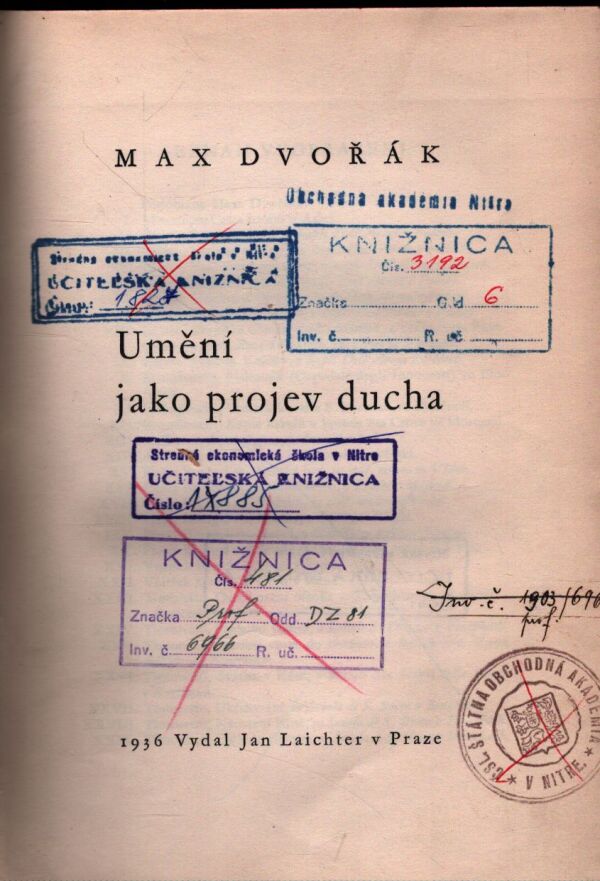 MAX DVOŘÁK
Obchodná akadémia Nitra
KNIŽNICA
Čís. 3192
Značka Odd 6
Inv. č. R. uč.
Stredná ekonomická škola v Nitre
UČITEĽSKÁ KNIŽNICA
Umění
jako projev ducha
Stredná ekonomická škola v Nitre
UČITEĽSKÁ KNIŽNICA
Číslo:
KNIŽNICA
Čís. 481
Značka Prof Odd. DZ 81
Inv. č. 6966 R. uč.
Inv. č. 1903/696
prof.
ČSL. ŠTÁTNA OBCHODNÁ AKADÉMIA
V NITRE
1936 Vydal Jan Laichter v Praze